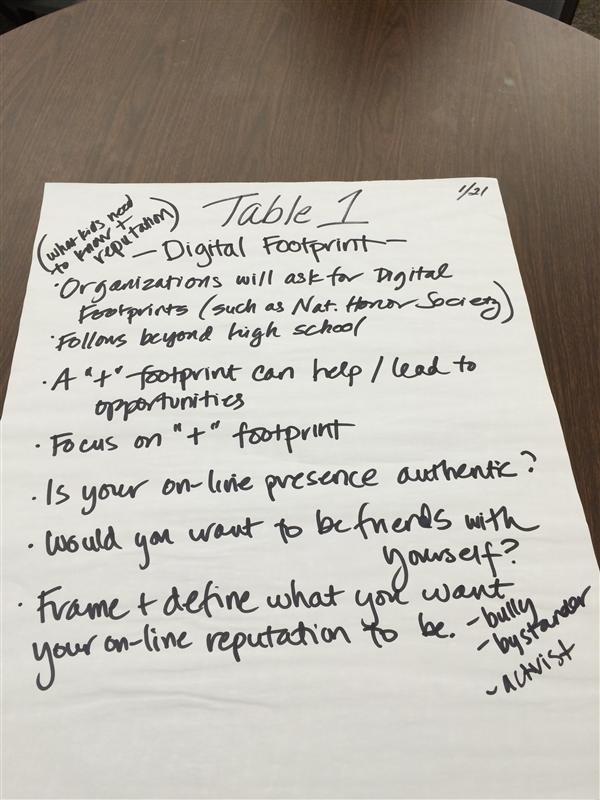 1/21
(what kids need
to know +
reputation)
Table 1
- Digital Footprint -
· Organizations will ask for Digital
Footprints (such as Nat. Honor Society)
· Follows beyond high school
· A "+" footprint can help / lead to
opportunities
· Focus on "+" footprint
· Is your on-line presence authentic?
· Would you want to be friends with
yourself?
· Frame + define what you want
your on-line reputation to be.
- bully
- bystander
- activist